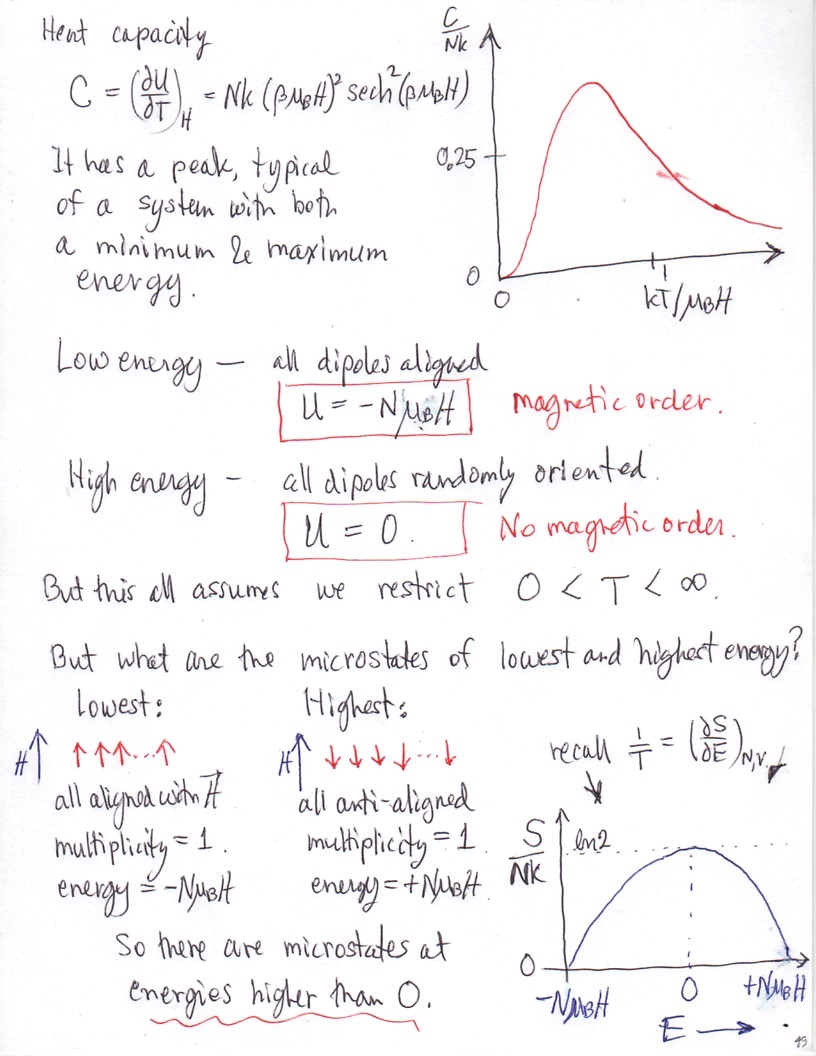 Heat capacity
C = (∂U/∂T)_H = Nk (βμ_BH)² sech²(βμ_BH)
It has a peak, typical
of a system with both
a minimum & maximum
energy.
C/Nk
0.25
0
0
kT/μ_BH
1
Low energy — all dipoles aligned
U = -Nμ_BH magnetic order.
High energy - all dipoles randomly oriented.
U = 0. No magnetic order.
But this all assumes we restrict 0 < T < ∞.
But what are the microstates of lowest and highest energy?
Lowest:
H ↑ ↑↑↑...↑
all aligned with H⃗
multiplicity = 1.
energy = -Nμ_BH
Highest:
H ↑ ↓↓↓↓...↓
all anti-aligned
multiplicity = 1.
energy = +Nμ_BH
So there are microstates at
energies higher than 0.
recall 1/T = (∂S/∂E)_N,V
S/Nk
ln2
0
-Nμ_BH 0 +Nμ_BH
E →
49